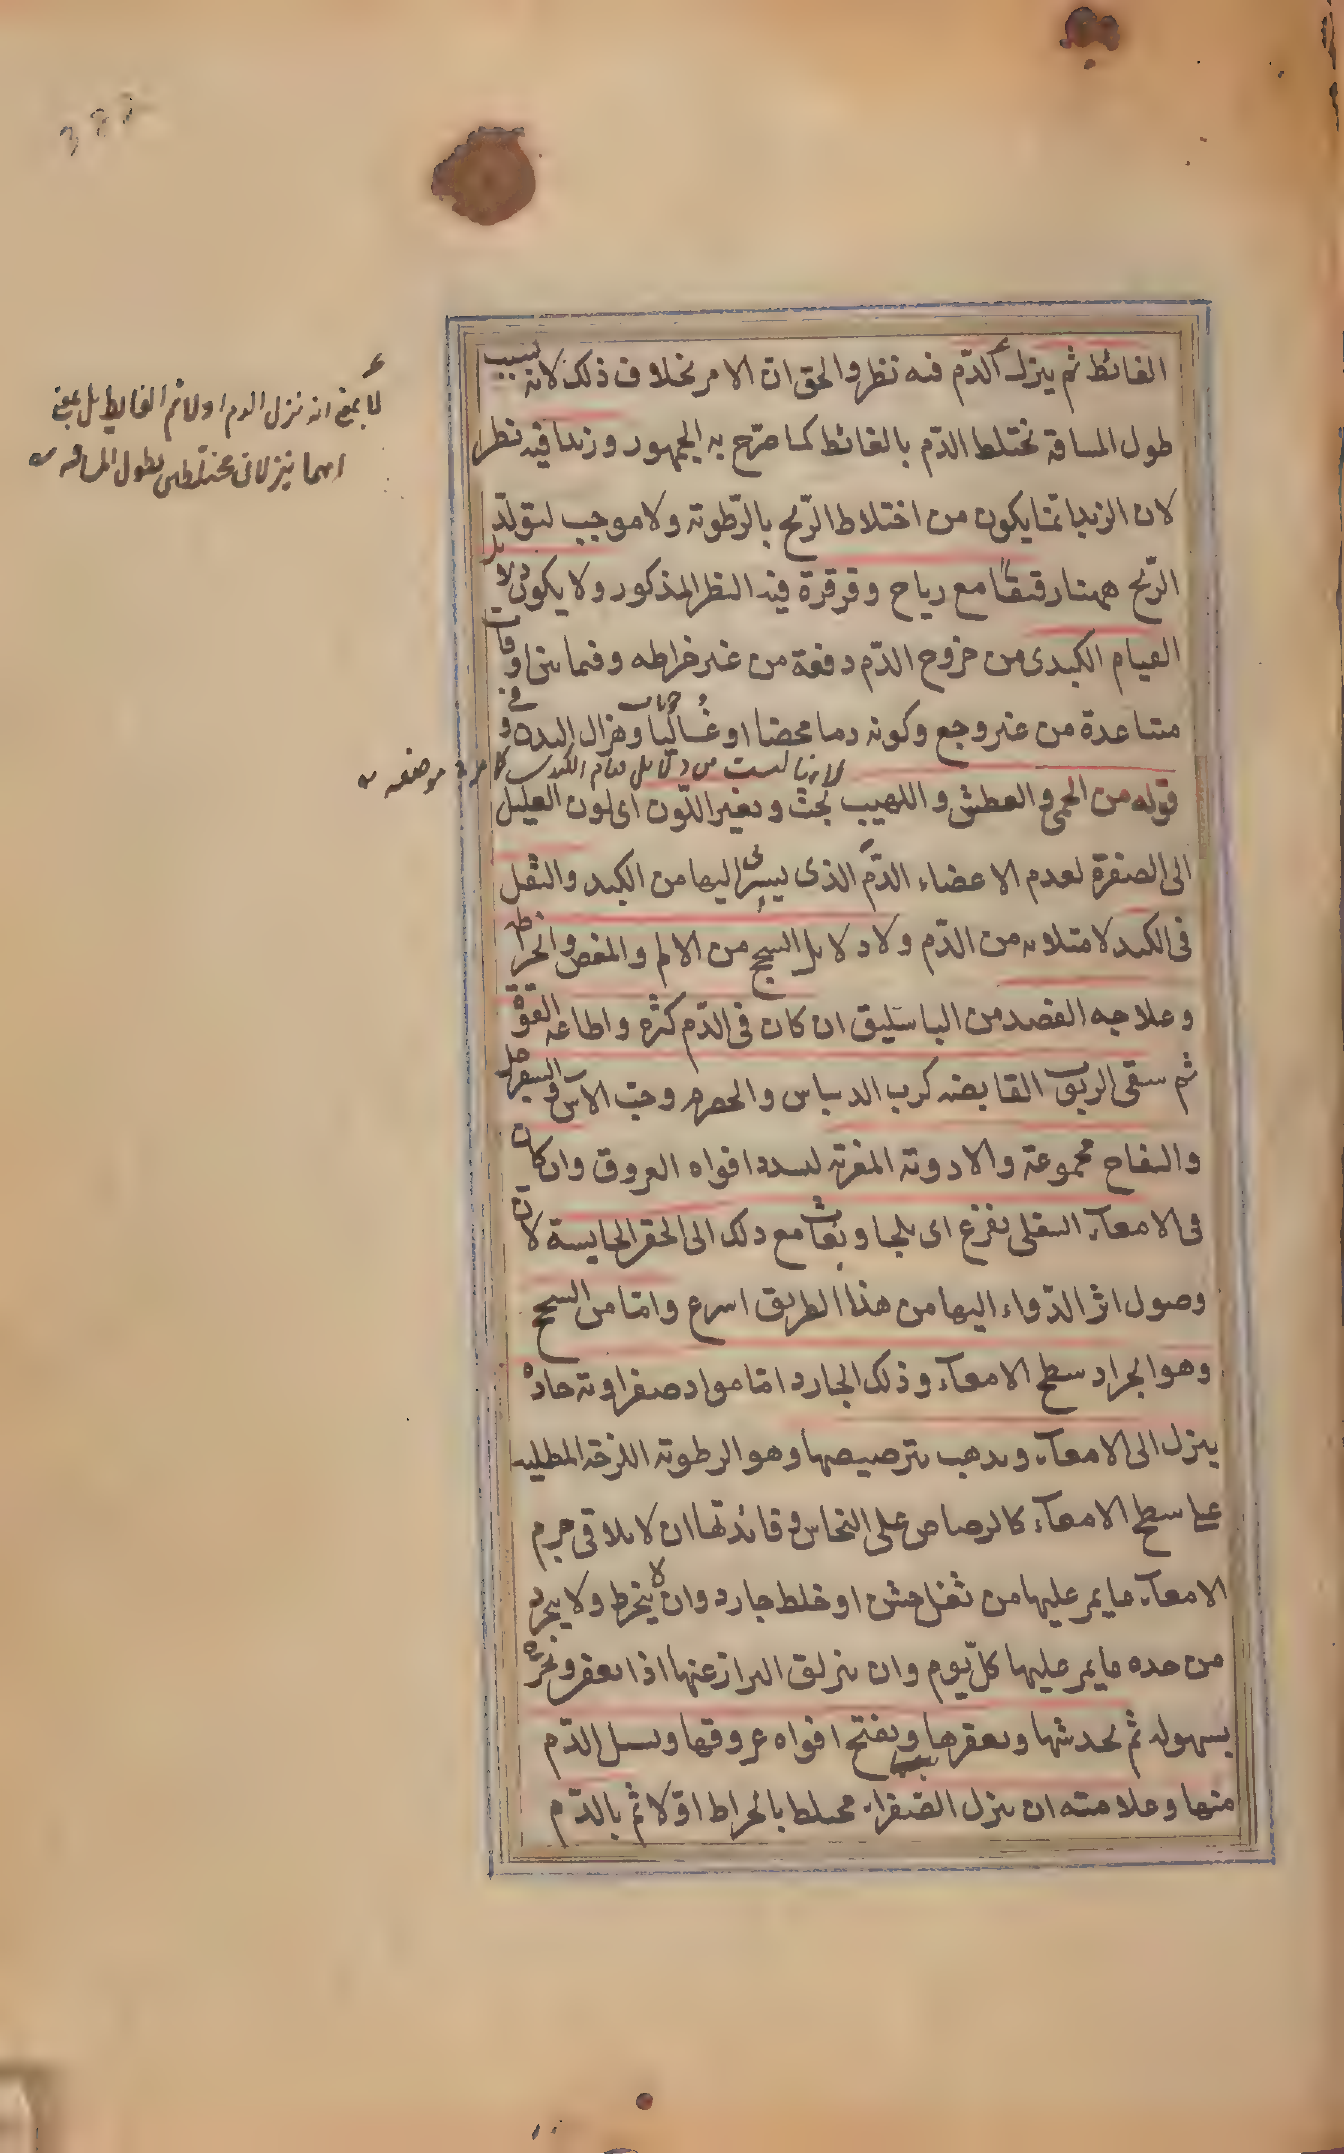 الغائط ثم ينزل الدّم فيه نظر والحق ان الامر بخلاف ذلك لانه بسبب
طول المسافة يختلط الدّم بالغائط كما صرّح به الجمهور وزبدا فيه نظر
لان الزبد انما يكون من اختلاط الرّيح بالرّطوبة ولا موجب لتولّد
الرّيح ههنا رقيقًا مع رياح وقرقرة فيه النظر المذكور ولا يكون دلايل
القيام الكبدى من خروج الدّم دفعة من غير خراطه وفيما بين اوقات
متباعدة من غير وجع وكونه دما محضا او غساليا وهزال البدن و فى
قوله من الحمى و العطش و اللهيب بحث وتغير اللّون اى لون العليل
الى الصفرة لعدم الاعضاء الدّم الذى يسرى اليها من الكبد والثقل
فى الكبد لامتلائه من الدّم ولا دلايل السحج من الالم والمغص والخراطه
وعلاجه الفصد من الباسليق ان كان فى الدّم كثرة واطاعة القوّة
ثم سقى الربوب القابضه كرب الديباس والحصرم وحبّ الاس و السفرجل
والتفاح مجموعة والادوية المغرية لسدد افواه العروق وان كان
فى الامعآء السفلى يفزع اى يلجا ويغاث مع ذلك الى الحقن الحابسة لان
وصول اثر الدّواء اليها من هذا الطريق اسرع وامّا من السحج
وهو انجراد سطح الامعآء وذلك الجارد امّا مواد صفراوية حادة
ينزل الى الامعآء ويذهب بترصيصها وهو الرطوبة اللزجة المطليه
على سطح الامعآء كالرصاص على النحاس و فائدتها ان لا يلاقى جرم
الامعآء ما يمر عليها من ثفل خشن او خلط جارد وان لا ينخرط ولا ينجرد
من حده ما يمر عليها كلّ يوم وان ينزلق البراز عنها اذا
بسهوله ثم يخدشها ويعقرها ويفتح افواه عروقها ويسيل الدّم
منها وعلامته ان ينزل الصّفراء مختلطا بالخراط اوّلا ثم بالدّم
لا بمعنى انه نزل الدم اولا ثم الغايط بل بمعنى
انهما ينزلان مختلطين بطول المسافه
لانها ليست من دلايل قيام الكبدى كما مر فى موضعه